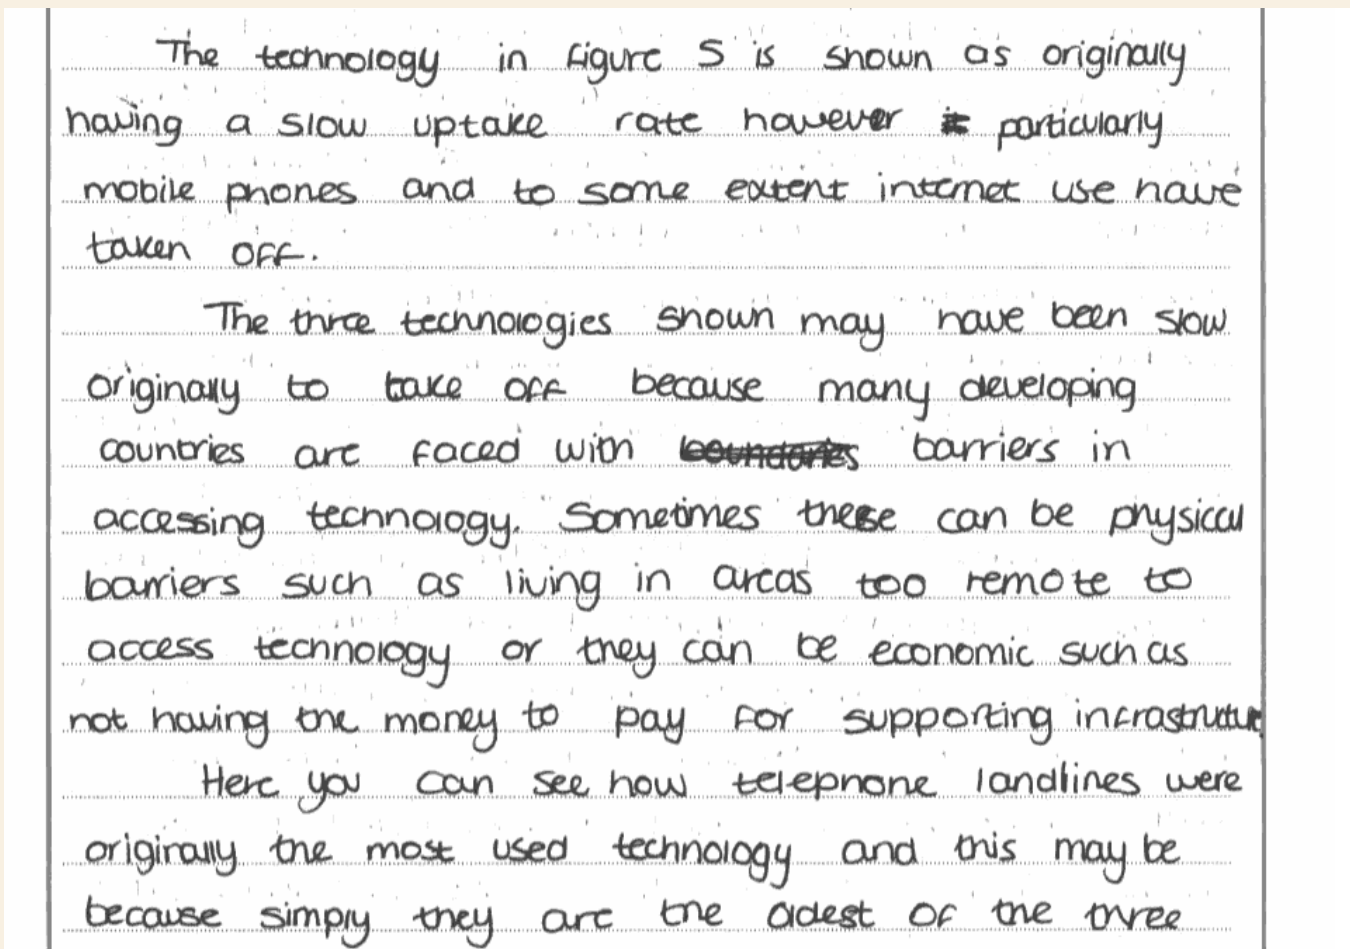 The technology in Figure 5 is shown as originally
having a slow uptake rate however particularly
mobile phones and to some extent internet use have
taken off.
The three technologies shown may have been slow
originally to take off because many developing
countries are faced with boundaries barriers in
accessing technology. Sometimes these can be physical
barriers such as living in areas too remote to
access technology or they can be economic such as
not having the money to pay for supporting infrastructure
Here you can see how telephone landlines were
originally the most used technology and this may be
because simply they are the oldest of the three